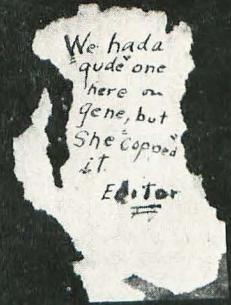 We had a
"gude" one
here on
gene, but
She "copped"
it.
Editor